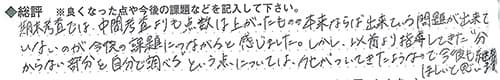 ◆総評 ※良くなった点や今後の課題などを記入して下さい。
期末考査では、中間考査よりも点数は上がったものの本来ならば出来ている問題が出来て
いないのが今後の課題につながると感じました。しかし、以前より指導してきた"分
からない部分を自分で調べる"という点については、身についてきたようなので今後も継続
ほしいと思います